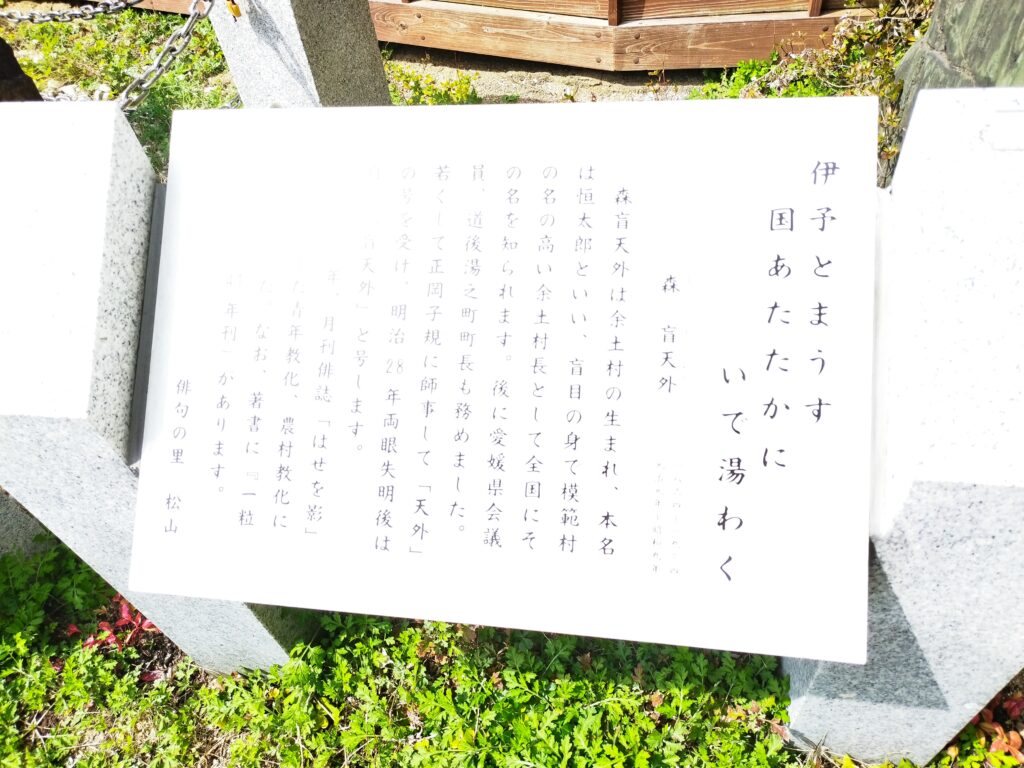 伊予とまうす
国あたたかに
いで湯わく
森 盲天外
森盲天外は余土村の生まれ、本名
は恒太郎といい、盲目の身で模範村
の名の高い余土村長として全国にそ
の名を知られます。後に愛媛県会議
員、道後湯之町町長も務めました。
若くして正岡子規に師事して「天外」
の号を受け、明治28年両眼失明後は
盲天外」と号します。
年、月刊俳誌「はせを影」
た青年教化、農村教化に
た。なお、著書に『一粒
年刊」があります。
俳句の里 松山